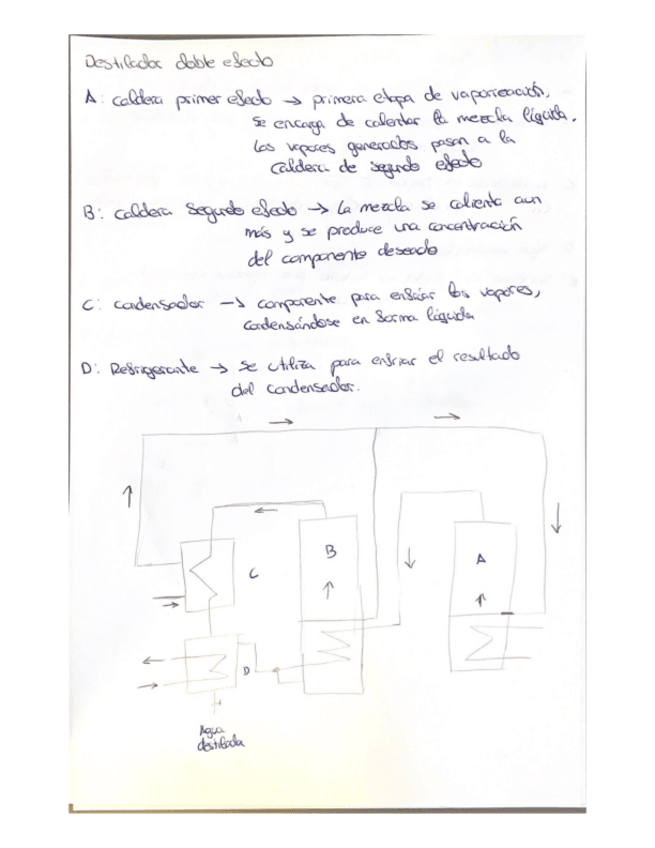 Destilador doble efecto
A: caldera primer efecto → primera etapa de vaporización,
se encarga de calentar la mezcla líquida.
Los vapores generados pasan a la
caldera de segundo efecto
B: caldera segundo efecto → La mezcla se calienta aun
más y se produce una concentración
del componente deseado
C: condensador → componente para enfriar los vapores,
condensándose en forma líquida
D: Refrigerante → se utiliza para enfriar el resultado
del condensador.
B
A
C
D
Agua
destilada